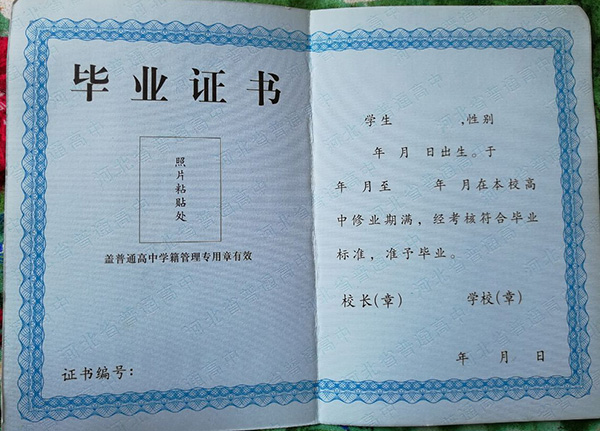 毕业证书
照片粘贴处
盖普通高中学籍管理专用章有效
证书编号：
学生 ,性别
年 月 日出生。于
年 月至 年 月在本校高
中修业期满，经考核符合毕业
标准，准予毕业。
校长(章) 学校(章)
年 月 日